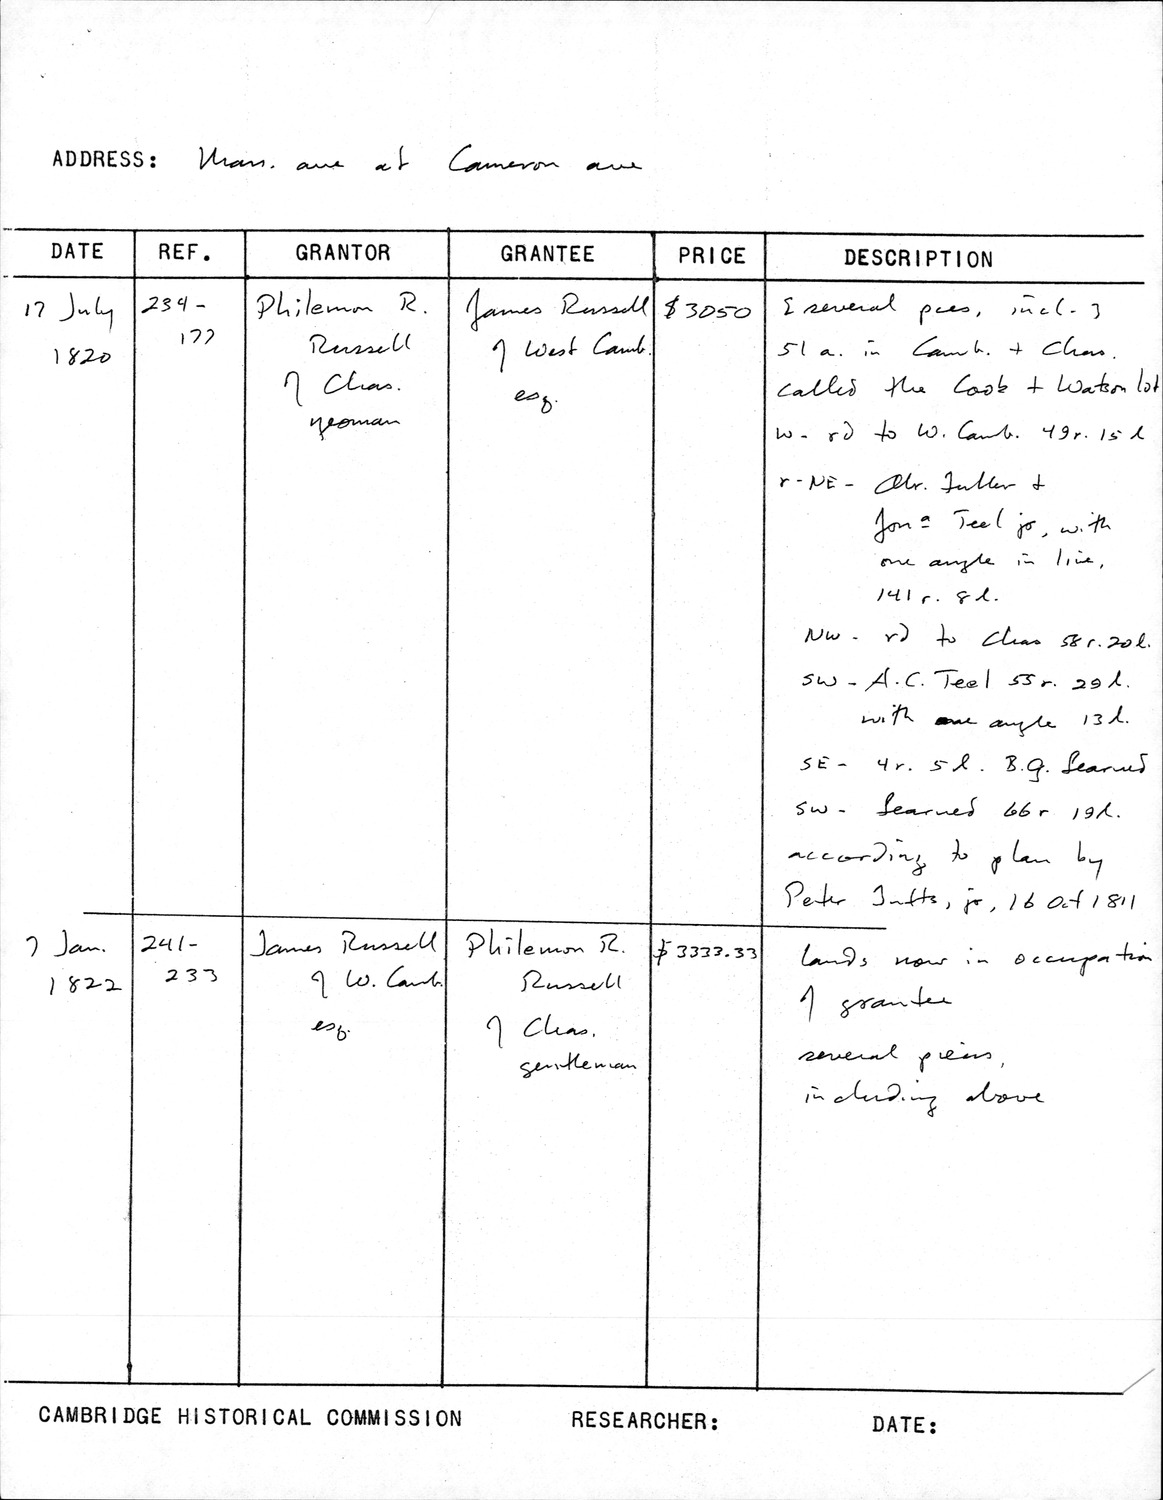 ADDRESS: Mass. ave at Cameron ave
DATE REF. GRANTOR GRANTEE PRICE DESCRIPTION
17 July 1820
234-177
Philemon R.
Russell
of Chas.
yeoman
James Russell
of West Camb.
esq.
$3050
[several pces, incl.]
51 a. in Camb. + Chas.
called the Cook + Watson lot
W - rd to W. Camb. 49r. 15 l
r - NE - Abr. Fuller +
Jonª Teel jr, with
one angle in line,
141 r. 8 l.
NW - rd to Chas 58 r. 20 l.
SW - A.C. Teel 55 r. 29 l.
with one angle 13 l.
SE - 4r. 5 l. B.G. Learned
SW - Learned 66 r 19 l.
according to plan by
Peter Tufts, jr, 16 Oct 1811
7 Jan.
1822
241-
233
James Russell
of W. Camb
esq.
Philemon R.
Russell
of Chas.
gentleman
$3333.33
lands now in occupation
of grantee
several pieces,
including above
CAMBRIDGE HISTORICAL COMMISSION RESEARCHER: DATE: